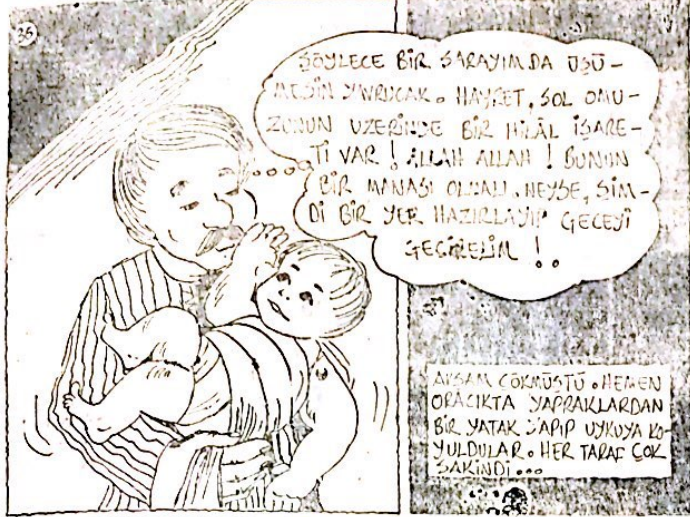 35
ŞÖYLECE BİR SARAYIM DA ÜŞÜ-
MESİN YAVRUCAK. HAYRET, SOL OMU-
ZUNUN ÜZERİNDE BİR HİLÂL İŞARE-
Tİ VAR! ALLAH ALLAH! BUNUN
BİR MANASI OLMALI. NEYSE, ŞİM-
Dİ BİR YER HAZIRLAYIP GECEYİ
GEÇİRELİM!..
AKŞAM ÇÖKMÜŞTÜ. HEMEN
ORACIKTA YAPRAKLARDAN
BİR YATAK YAPIP UYKUYA KO-
YULDULAR. HER TARAF ÇOK
SAKİNDİ...